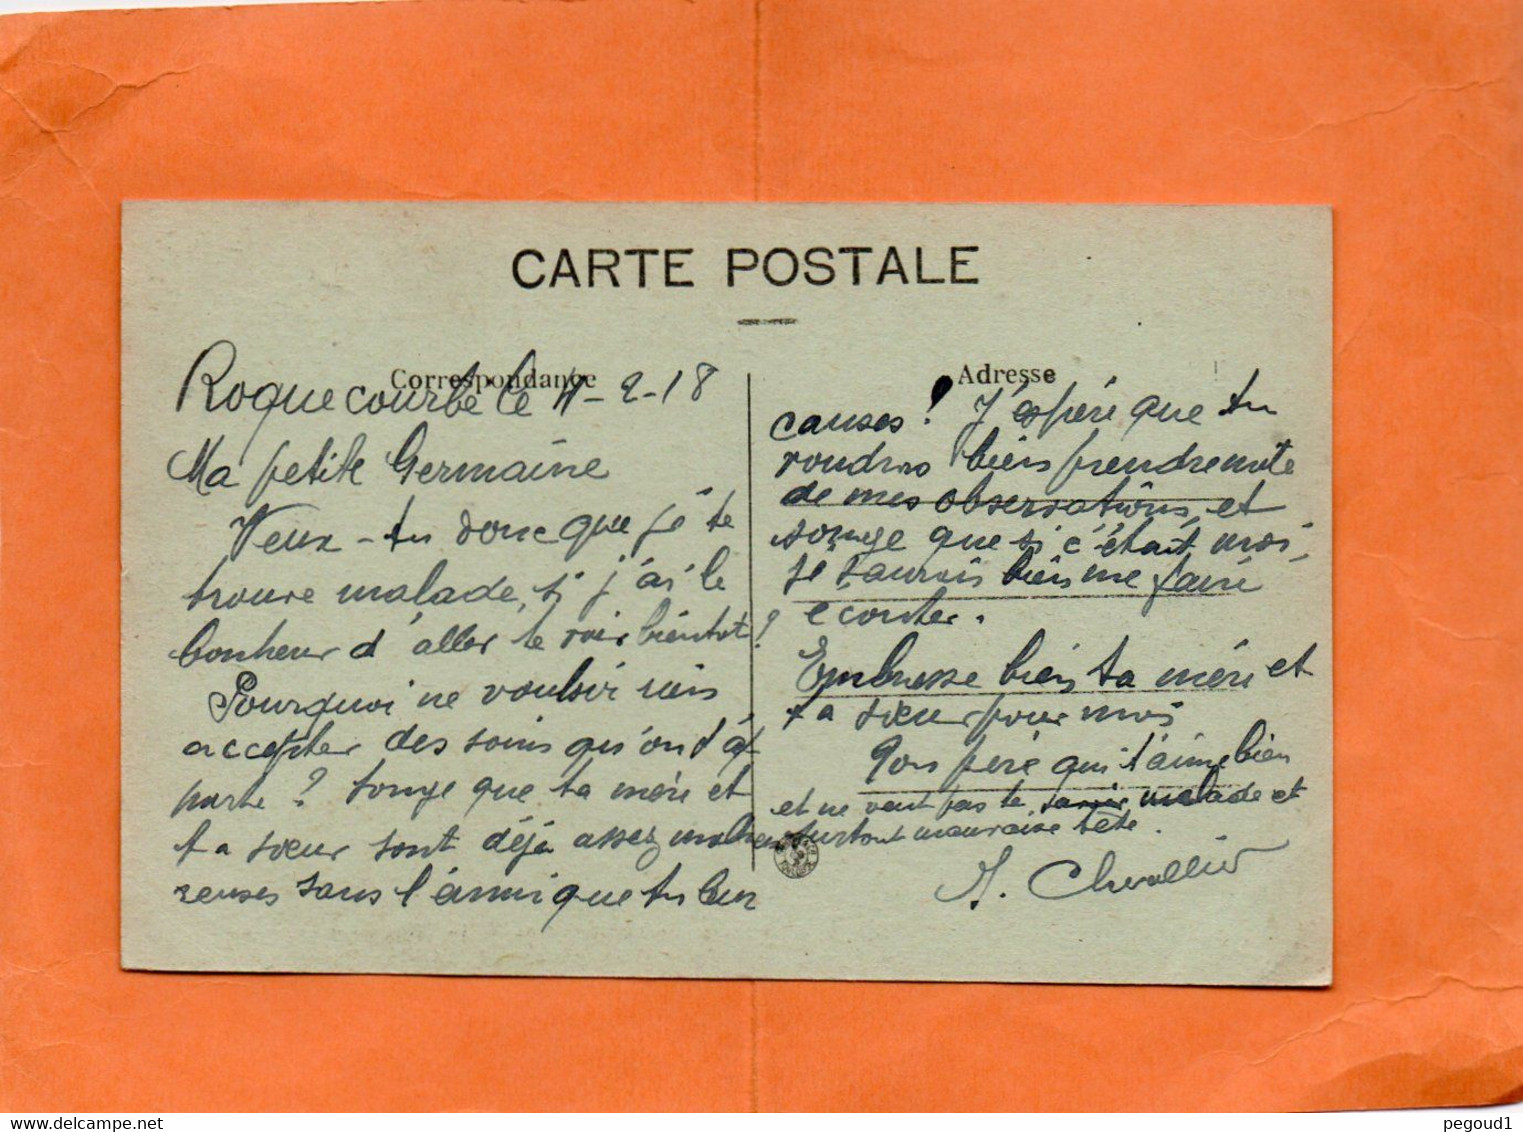 CARTE POSTALE
Correspondance
Roquecourbe le 11-2-18
Ma petite Germaine
Veux-tu donc que je te
trouve malade, si j'ai le
bonheur d'aller te voir bientôt?
Pourquoi ne vouloir rien
accepter des soins qu'on t'ap
porte? songe que ta mère et
ta sœur sont déjà assez malheu
reuses sans l'ennui que tu leur
Adresse
causes! J'espère que tu
voudras bien prendre note
de mes observations, et
songe que si c'était moi,
je saurais bien me faire
écouter.
Embrasse bien ta mère et
ta sœur pour moi
Ton père qui t'aime bien
et ne veut pas te savoir malade et
surtout mauvaise tête.
A. Chevallier
pegoud1